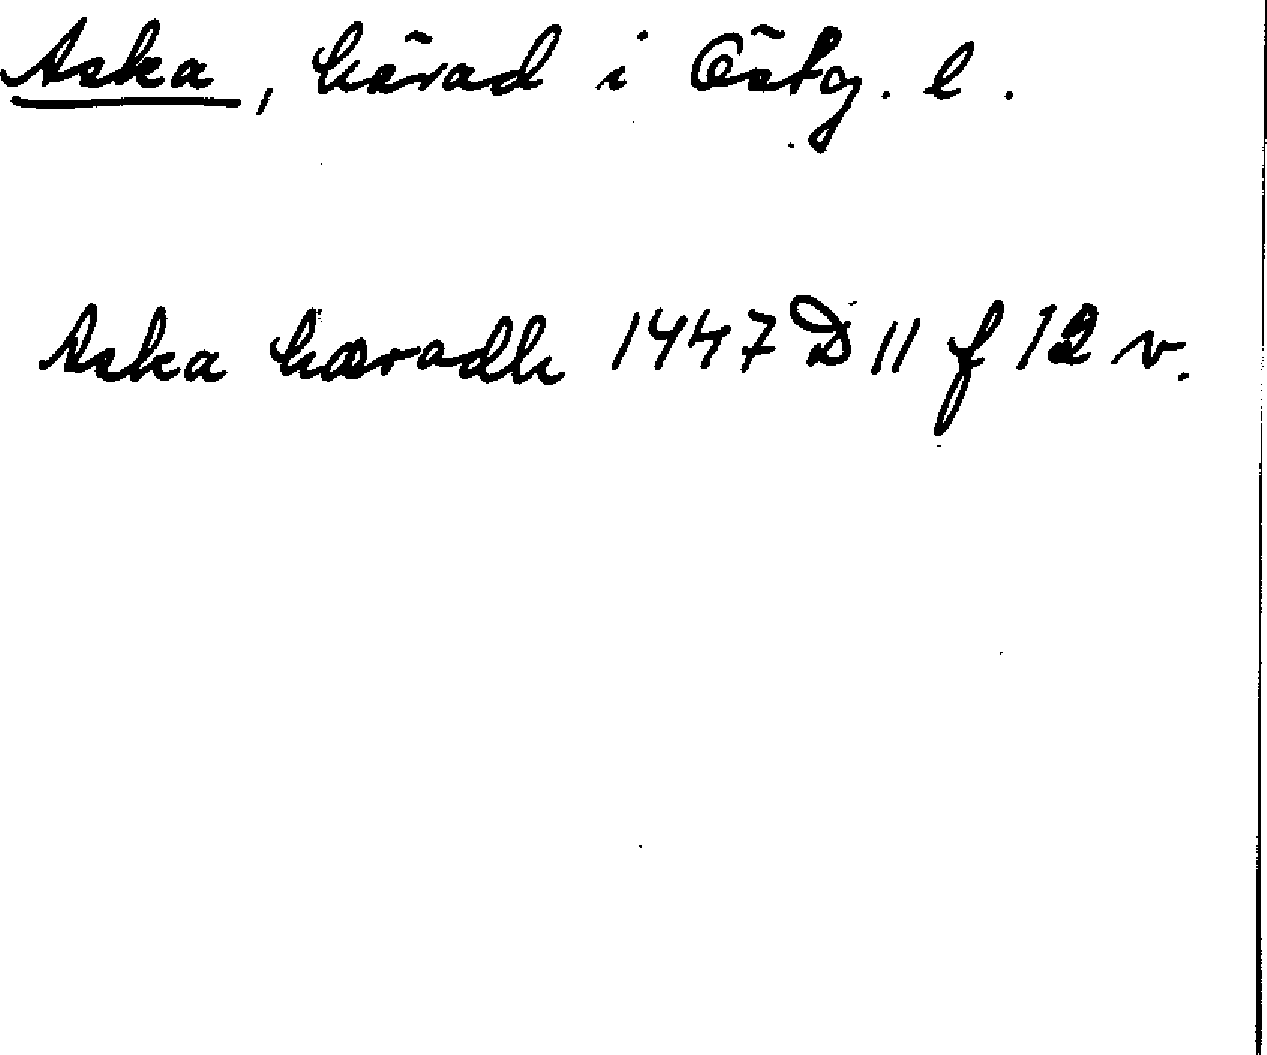 Aska, härad i Östg. l.
Aska hæradh 1447 D 11 f 12 v.